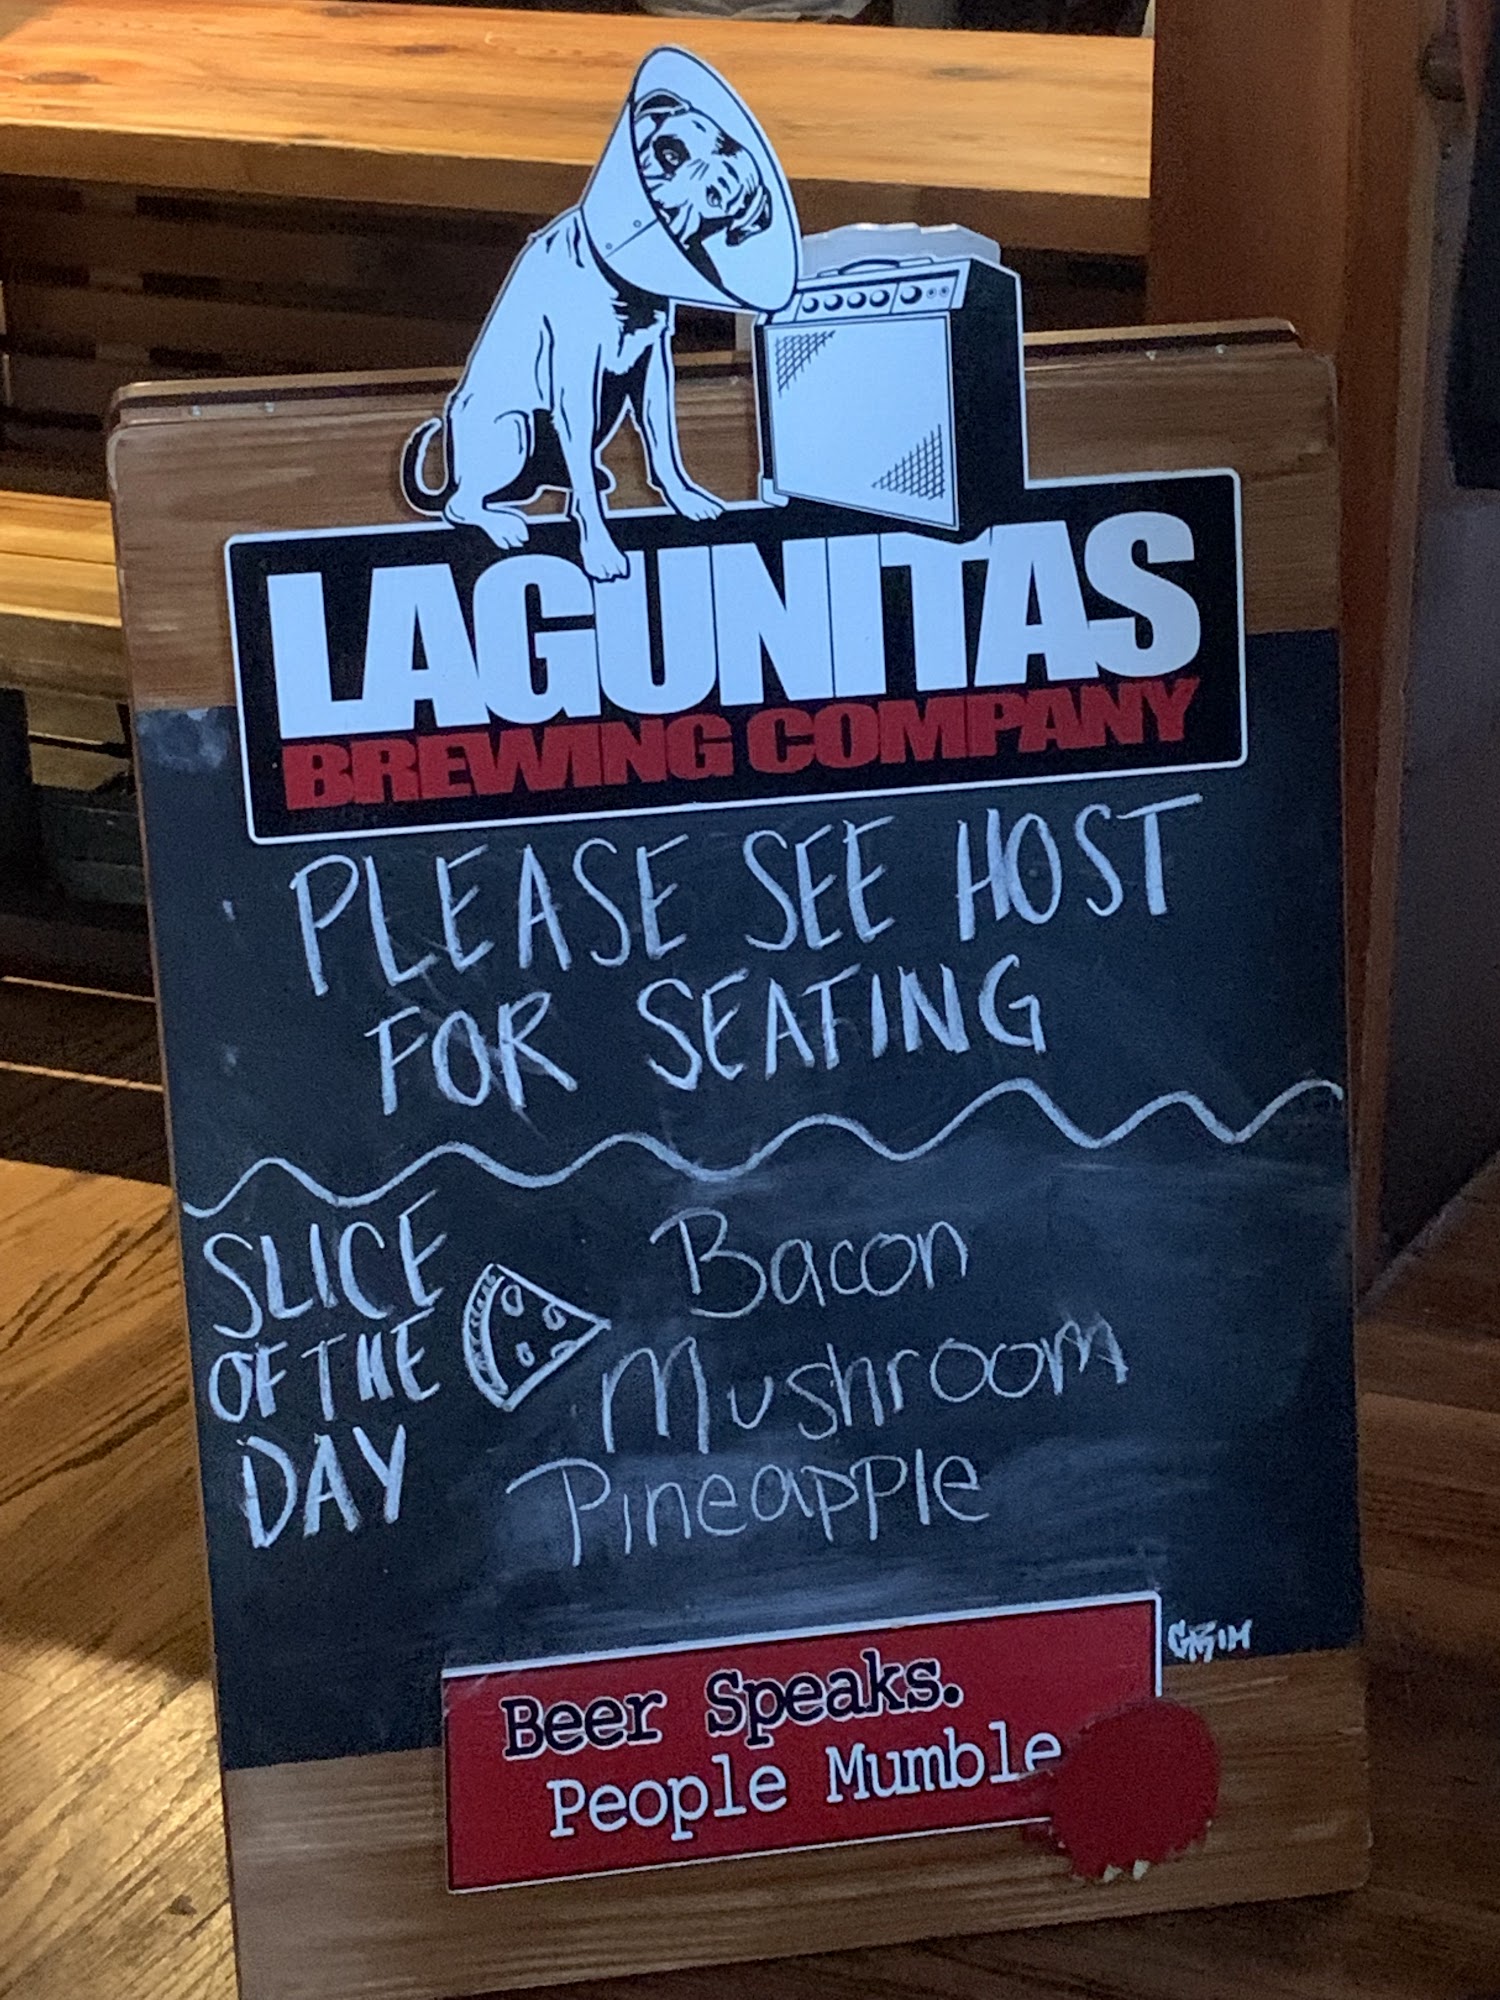 LAGUNITAS
BREWING COMPANY
PLEASE SEE HOST
FOR SEATING
SLICE
OF THE
DAY
Bacon
Mushroom
Pineapple
GRIM
Beer Speaks.
People Mumble